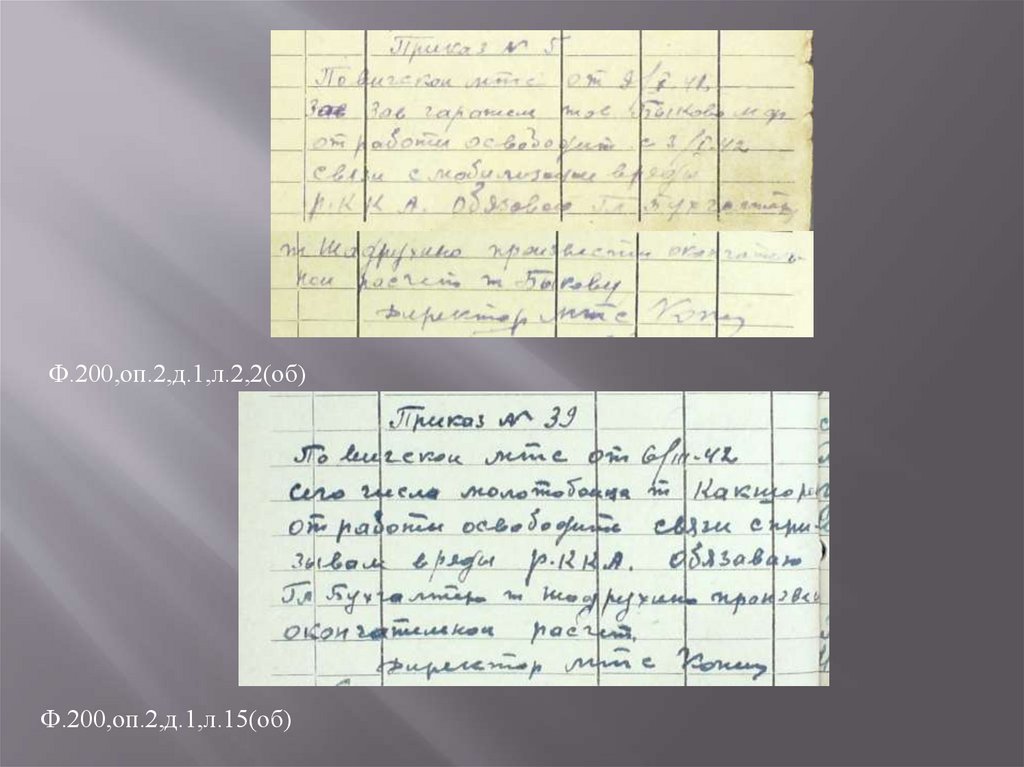 Приказ № 5
По вигскои мтс от 9/I-42
Зав гаражем тов Быкова
от работы освободит с 3/I-42
связи с мобилизации вряды
Р.К.К.А. Обязоваю Гл Бухгалтер
т Шадрухино произвести окончатель-
нои расчет т Быкову
Директор мтс
Ф.200,оп.2,д.1,л.2,2(об)
Приказ № 39
По вигскои мтс от 6/III-42
сего числа молотобоица т
от работы освободить связи с при-
зывам вряды Р.К.К.А. Обязаваю
Гл Бухгалтер т Шадрухино произвес
окончательнои расчет.
Директор мтс
Ф.200,оп.2,д.1,л.15(об)